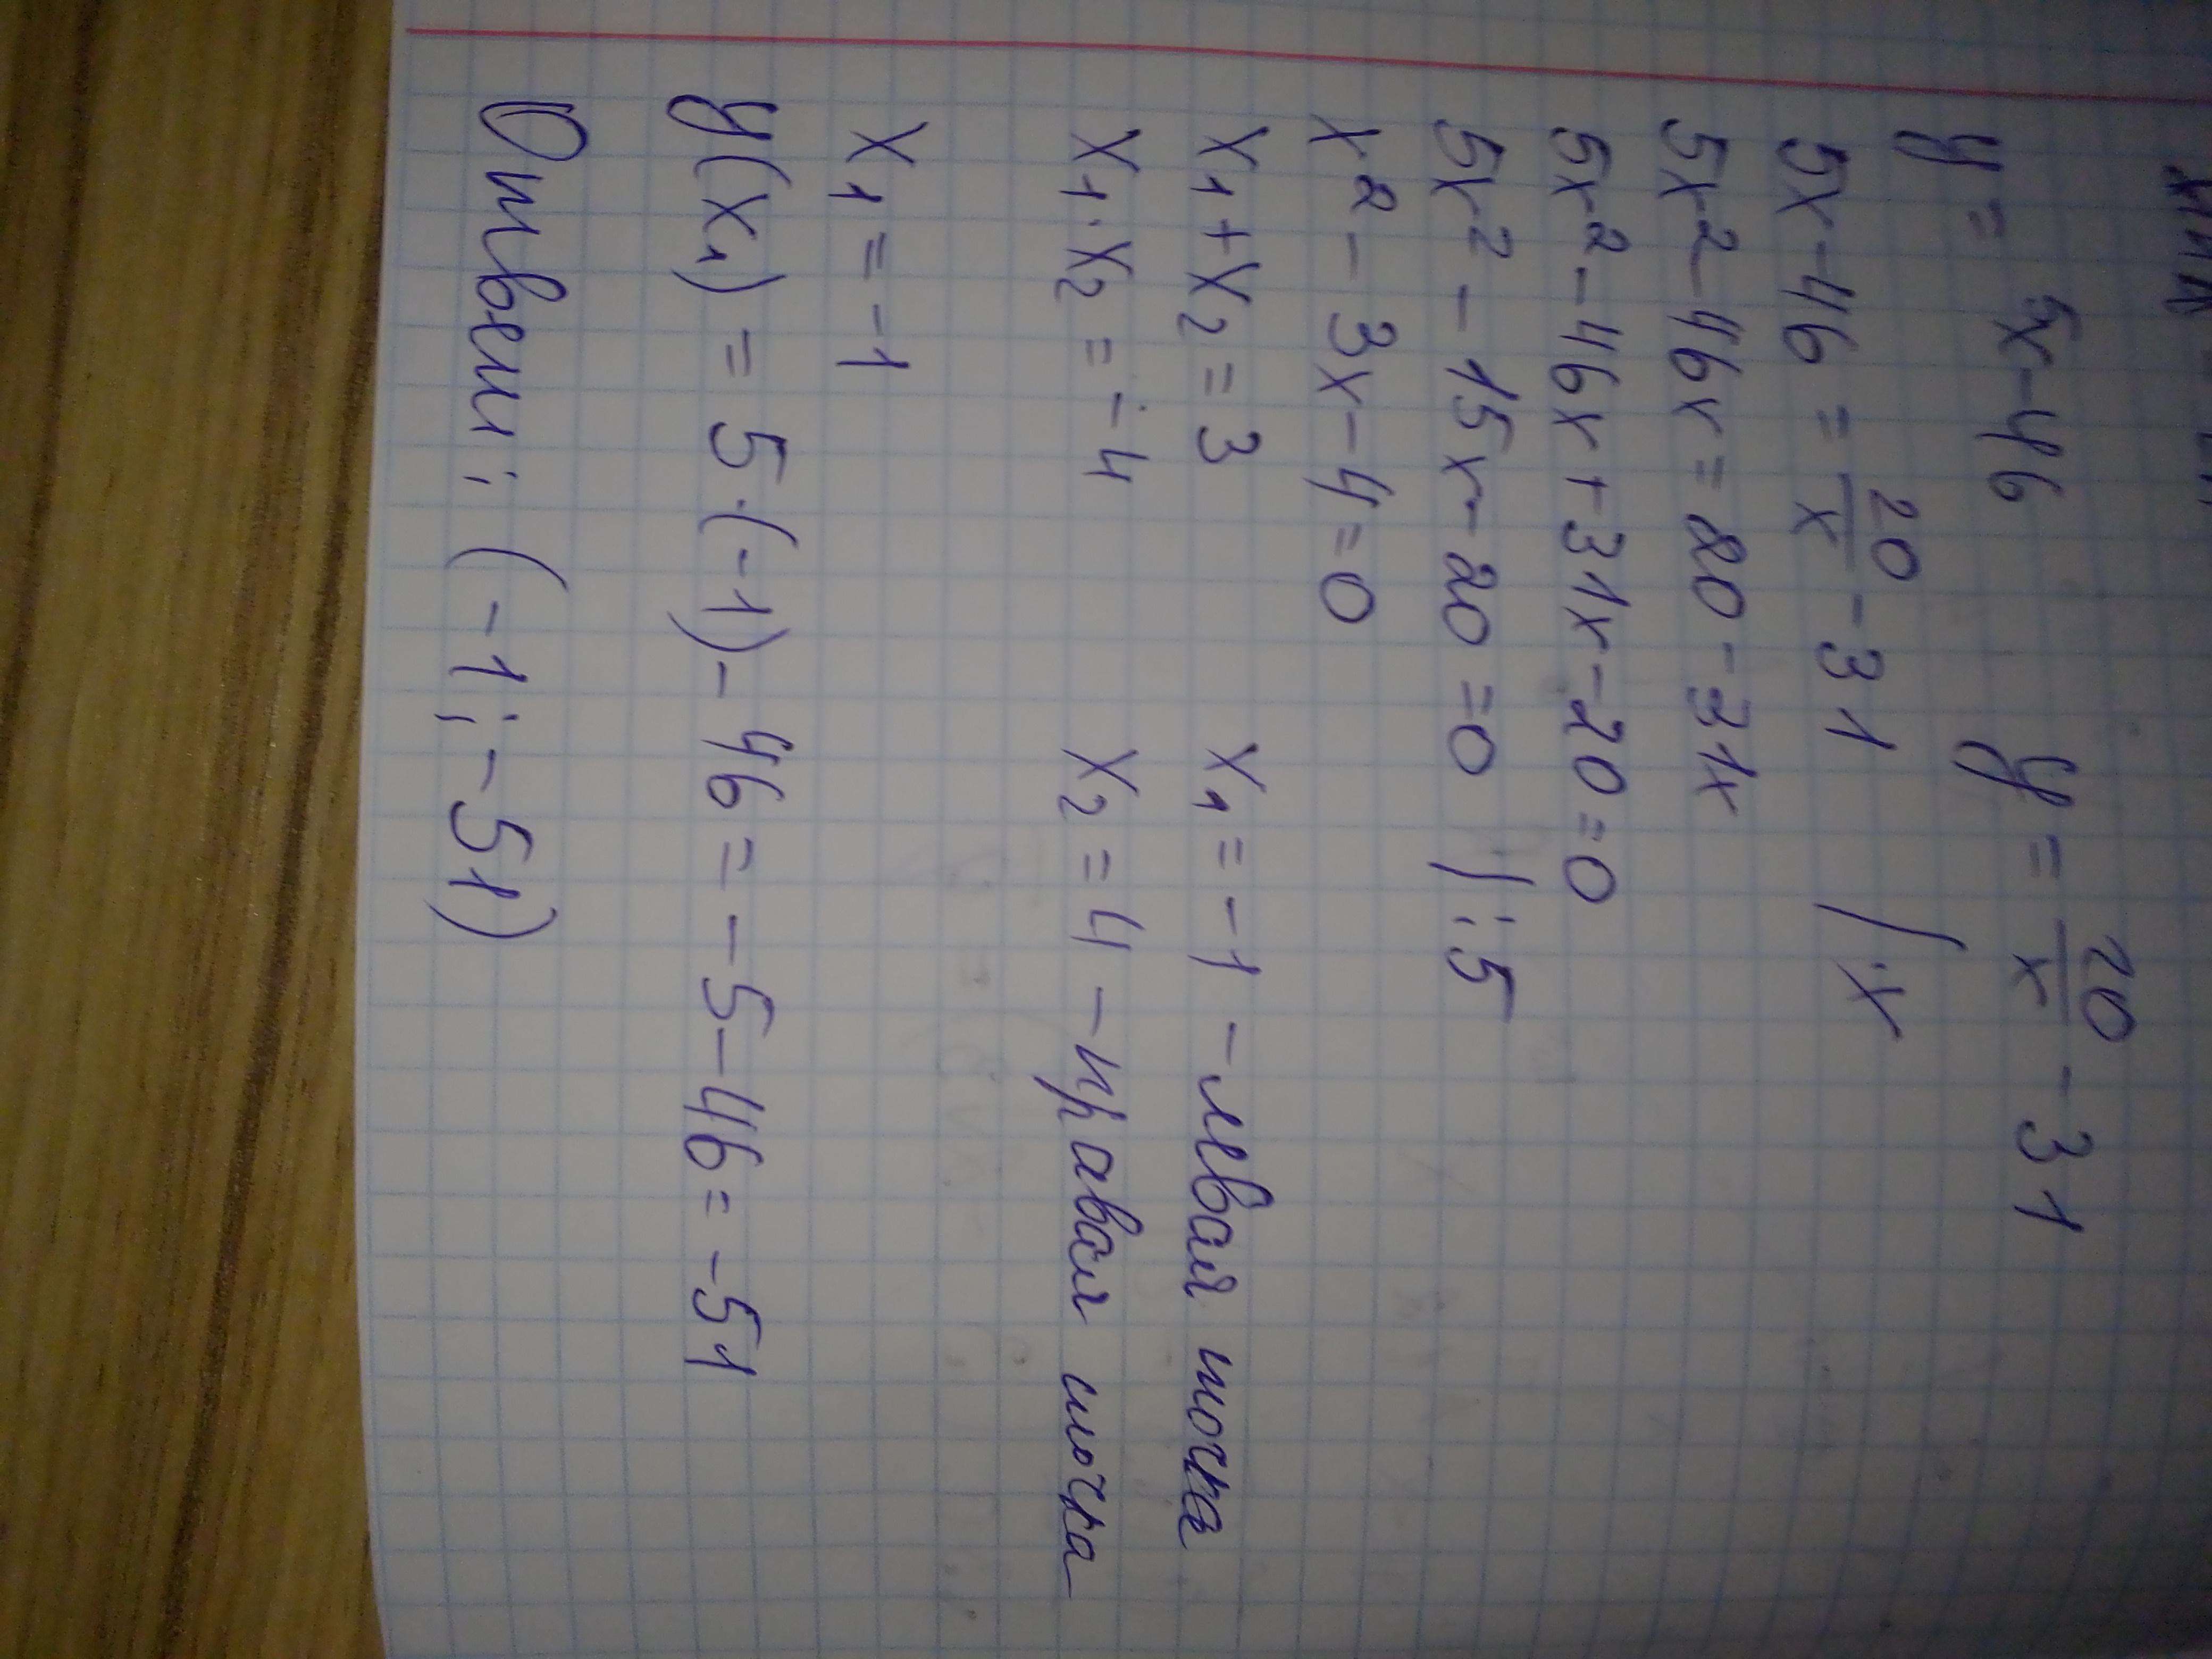 y = 5x-46 y = 20/x - 31
5x-46 = 20/x - 31 | ·x
5x²-46x = 20-31x
5x²-46x+31x-20=0
5x²-15x-20=0 | :5
x²-3x-4=0
x₁+x₂=3 x₁=-1 - левая точка
x₁·x₂=-4 x₂=4 - правая точка
x₁=-1
y(x₁) = 5·(-1)-46 = -5-46 = -51
Ответ: (-1; -51)